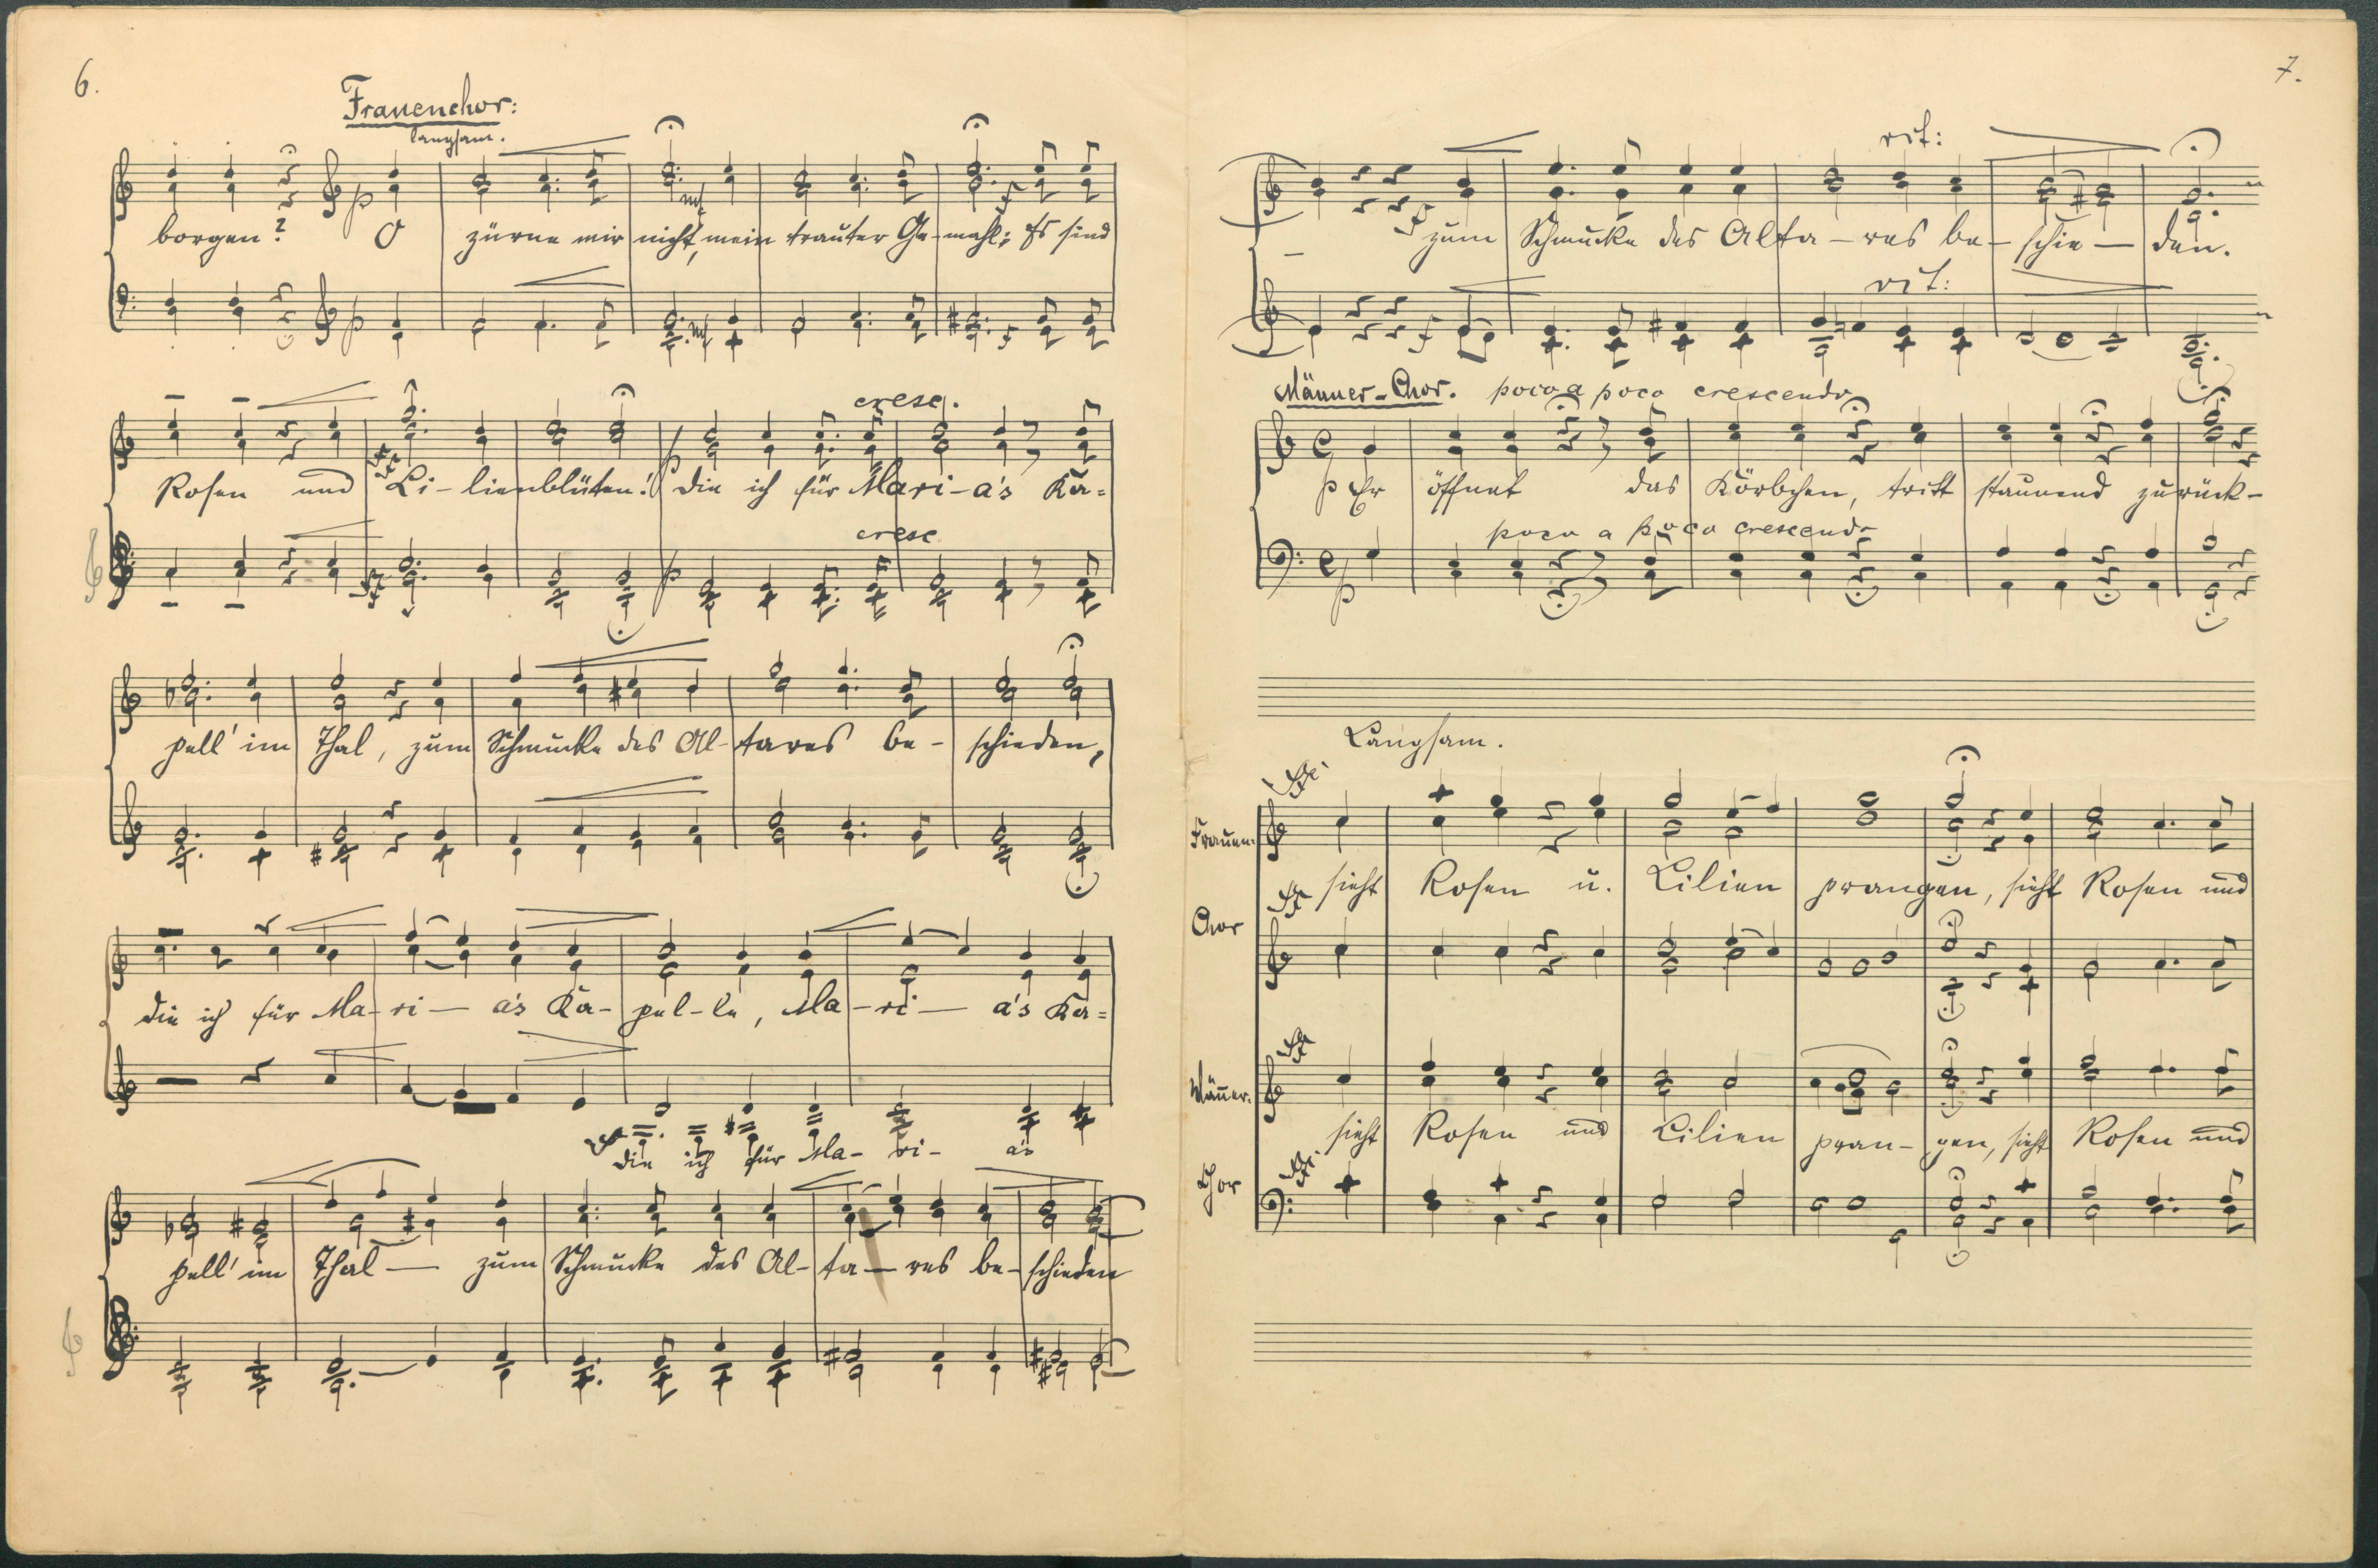 6.
Frauenchor:
langsam.
p
borgen? O zürne mir nicht, mein trauter Gemahl; Es sind
mf f
p mf f
cresc.
Rosen und Li-lienblüten! Die ich für Mari-a's Ka=
ff p
cresc
ff p
pell' im Thal, zum Schmucke des Al-tares be-schieden,
die ich für Ma-ri-a's Ka-pel-le, Ma-ri-a's Ka=
die ich für Ma-ri-a's
pell' im Thal — zum Schmucke des Al-ta-res be-schieden
7.
rit:
f
zum Schmucke des Alta-res be-schie-den.
rit:
f
Männer-Chor. poco a poco crescendo
p Er öffnet das Körbchen, tritt staunend zurück-
poco a poco crescendo
p
Langsam.
pp.
Frauen-
sieht Rosen u. Lilien prangen, sieht Rosen und
pp
Chor
pp
Männer-
sieht Rosen und Lilien pran-gen, sieht Rosen und
pp.
Chor